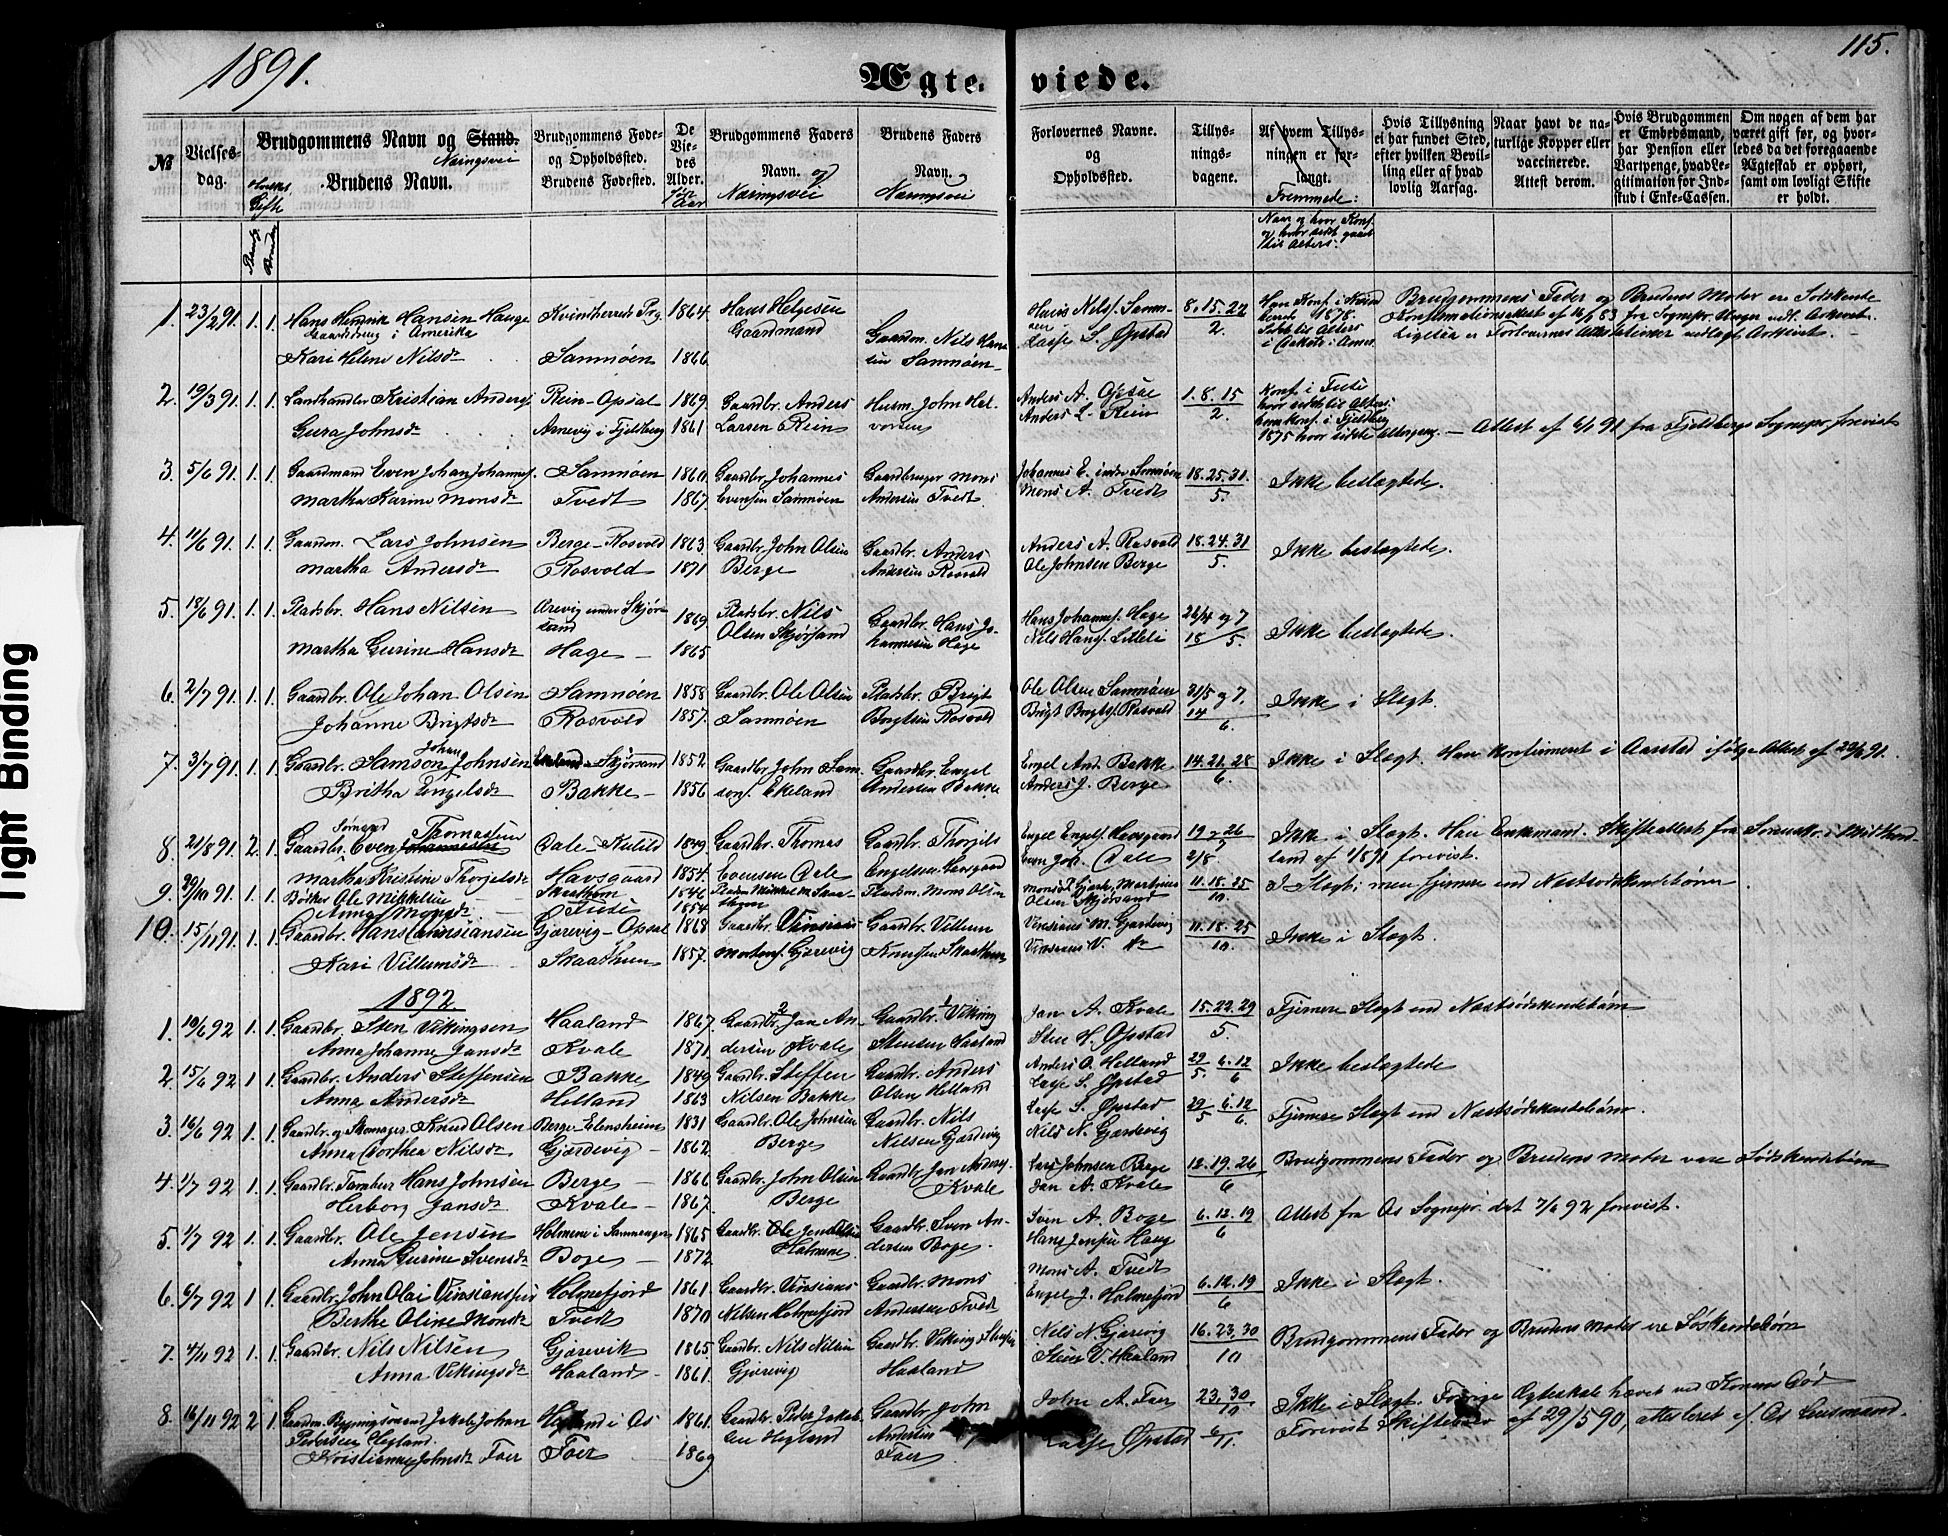 1891.
Ægteviede.
115.
№
Vielsesdag.
Brudgommens Navn og Stand.
Næringsvei
Brudens Navn.
Brudgommens Føde- og Opholdssted.
Brudens Fødested.
De Viedes Alder.
Brudgommens Faders Navn. og Næringsvei
Brudens Faders Navn. og Næringsvei
Forlovernes Navne. og Opholdsted.
Tillysningsdagene.
Af hvem Tillysningen er forlangt.
Fremmede:
Hvis Tillysning ei har fundet Sted, efter hvilken Bevilling eller af hvad lovlig Aarsag.
Naar havt de naturlige Kopper eller vaccinerede. Attest derom.
Hvis Brudgommen er Embedsmand, har Pension eller Vartpenge, hvad Legitimation for Indskud i Enke-Cassen.
Om nogen af dem har været gift før, og hvorledes da det foregaaende Ægteskab er ophørt, samt om lovligt Skifte er holdt.
1. 23/2 91. 1. 1. Hans Hendrik Hansen Hauge Kvindherreds Prg. 1864. Hans Helgesen Hans Nils. Samm- 8. 15. 22 Brudgommens Fader og Brudens Moder ere Sødskende
i Amerika Gaardmand Gaardm. Nils Han- 2.
Kari Helene Nilsdr Samnøen 1866. sen Samnøen Lasse S. Øpstad
2. 19/3 91. 1. 1. Landhandler Kristian Anders. Rein-Opsal 1869. Gaardbr. Anders Husm. John Hal- Anders A. Opsal 1. 8. 15
Gura Johnsdr Arnevig i Fjelberg 1861 Larsen Rein vorsen Anders L. Rein 2. Attest af 6/1 91 fra Fjeldbergs Sognepr. forevist
3. 5/6 91. 1. 1. Gaardmand Even Johan Johannes. Samnøen 1860. Gaardbr. Johannes Gaardbruger Mons Johannes E. indre Samnøen 18. 25. 31. Ikke beslægtede.
Martha Karine Monsdr Tvedt 1867. Evensen Samnøen Andersen Tvedt Mons A. Tvedt 5.
4. 11/6 91. 1. 1. Gaardm. Lars Johnsen Berge-Rosvold 1863. Gaardbr. John Olsen Gaardbr. Anders Anders A. Rosvold 18. 24. 31 Ikke beslægtede.
Martha Andersdr Rosvold 1871 Berge Andersen Rosvold Ole Johnsen Berge 5.
5. 18/6 91. 1. 1. Pladsbr. Hans Nilsen Arevig under Skjørsand 1869. Pladsbr. Nils Olsen Skjørsand Gaardbr. Hans Jo- Hans Johannes. Hage 26/4 og 7
Martha Gurine Hansdr Hage 1865 hannesen Hage Nils Hans. Litleli 18/5. Ikke beslægtede.
6. 2/7 91. 1. 1. Gaardbr. Ole Johan Olsen Samnøen 1858 Gaardbr. Ole Olsen Pladsbr. Brigt Ole Olsen Samnøen 31/5 og 7. Ikke i Slægt.
Johanne Brigtsdr Rosvold 1857. Samnøen Brigtsen Rosvold Brigt Brigts. Rosvold 14/6
7. 3/7 91. 1. 1. Gaardbr. Samson Johan Johnsen Skjørsand 1852. Gaardbr. John Sam- Gaardbr. Engel Engel And. Bakke 14. 21. 28 Ikke i Slægt. Han konfirmeret i Aarstad ifølge Attest af 22/6 91.
Britha Engelsdr Bakke 1856 sons. Ekeland Andersen Bakke Anders J. Berge 6.
8. 21/8 91. 2. 1. Gaardbr. Even Thomassen Dale 1849 Gaardbr. Thomas Gaardbr. Thorgils Engel Engels. Havsgaard 19 og 26 Ikke i Slægt. Han Enkemand. Skifteattest fra
Martha Kristine Thorgilsdr Havsgaard 1854. Evensen Dale Engelsen Havsgaard Even Joh. Dale 2/8. land af 1/8 91 forevist.
9. 29/10 91. 1. 1. Bødker Ole Mikkelsen Skaathun 1846 Pladsm. Mons Olsen 11. 18. 25 I Slægt; men fjernere end Næstsødskendebørn
Anna Monsdr 1854 Olsen Skjørsand 10.
10. 15/11 91. 1. 1. Gaardbr. Hans Vinsiansen Gjærevig-Opsal 1868 Gaardbr. Vinsians Gaardbr. Villum Vinsians M. Gjærevig 11. 18. 25 Ikke i Slægt.
Kari Villumsdr Skaathun 1857. Mortens. Gjærevig Knutsen Skaathun Vinsians V. do 10
1892
1. 10/6 92. 1. 1. Gaardbr. Sten Vikingsen Haaland 1867. Gaardbr. Jan An- Gaardbr. Viking Jan A. Kvale 15. 22. 29 Fjernere Slægt end Næstsødskendebørn
Anna Johanne Jansdr Kvale 1871. dersen Kvale Stensen Haaland Sten H. Øpstad 5.
2. 15/6 92 1 1. Gaardbr. Anders Steffensen Bakke 1849 Gaardbr. Steffen Gaardbr. Anders Anders O. Helland 29/5 6. 12/6 Ikke beslægtede
Anna Andersdr Helland 1863 Nilsen Bakke Olsen Helland Lasse S. Øpstad
3. 16/6 92 1. 1. Gaardbr. og Skomager Knud Olsen Berge-Eldnsheim 1831 Gaardbr. Ole Johnsen Gaardbr. Nils Lasse S. Øpstad 29/5 6. 12/6 Fjernere Slægt end Næstsødskendebørn.
Anna Dorthea Nilsdr Gjærdevig 1862. Berge Nilsen Gjærdevig Nils N. Gjærdevig
4. 1/7 92 1. 1. Gaardbr. Tambur Hans Johnsen Berge 1866 Gaardbr. John Olsen Gaardbr. Jan Anders. Lars Johnsen Berge 12. 19. 26 Brudgommens Fader og Brudens Moder vare Sødskendebørn
Herborg Jansdr Kvale 1867. Berge Kvale Jan A. Kvale 6
5. 1/7 92 1. 1. Gaardbr. Ole Jensen Holmene i Samnanger 1865 Gaardbr. Jens Olsen Holmene Gaardbr. Sven An- Sven A. Boge 6. 12. 19 Attest fra Os Sognepr. dat 7/6 92 forevist.
Anna Gurine Svensdr Boge 1872. dersen Boge. Hans Jensen Haug 6
6. 6/7 92 1 1. Gaardbr. John Olai Vinsiansen Holmefjord 1861 Gaardbr. Vinsians Gaardbr. Mons Mons A. Tvedt 6. 12. 19 Ikke i Slægt.
Berthe Oline Monsdr Tvedt 1870 Nilsen Holmefjord Andersen Tvedt Engel J. Holmefjord 6
7. 4/11 92 1. 1. Gaardbr. Nils Nilsen Gjærevik 1865 Gaardbr. Nils Nilsen Gaardbr. Viking Stensen Nils N. Gjærevig 16. 23. 30 Brudgommens Fader og Brudens Moder ere Søskendebørn
Anna Vikingsdr Haaland 1861. Gjærevig Haaland Sten V. Haaland 10
8. 16/11 92 2 1. Gaardm. Bygningsmand Jakob Johan i Os 1861. Gaardbr. Peder Jakob- Gaardbr. John John A. Faer 23. 30/10 Ikke i Slægt. Forrige Ægteskab hævet ved Konens Død
Pedersen Hegland. sen Hegland Andersen 6/11. Forevist Skiftebrev af 29/5 90, attesteret af Os Lensmand
Kristianne Johnsdr Faer Faer 1869 Faer Lasse Øpstad
Tight Binding